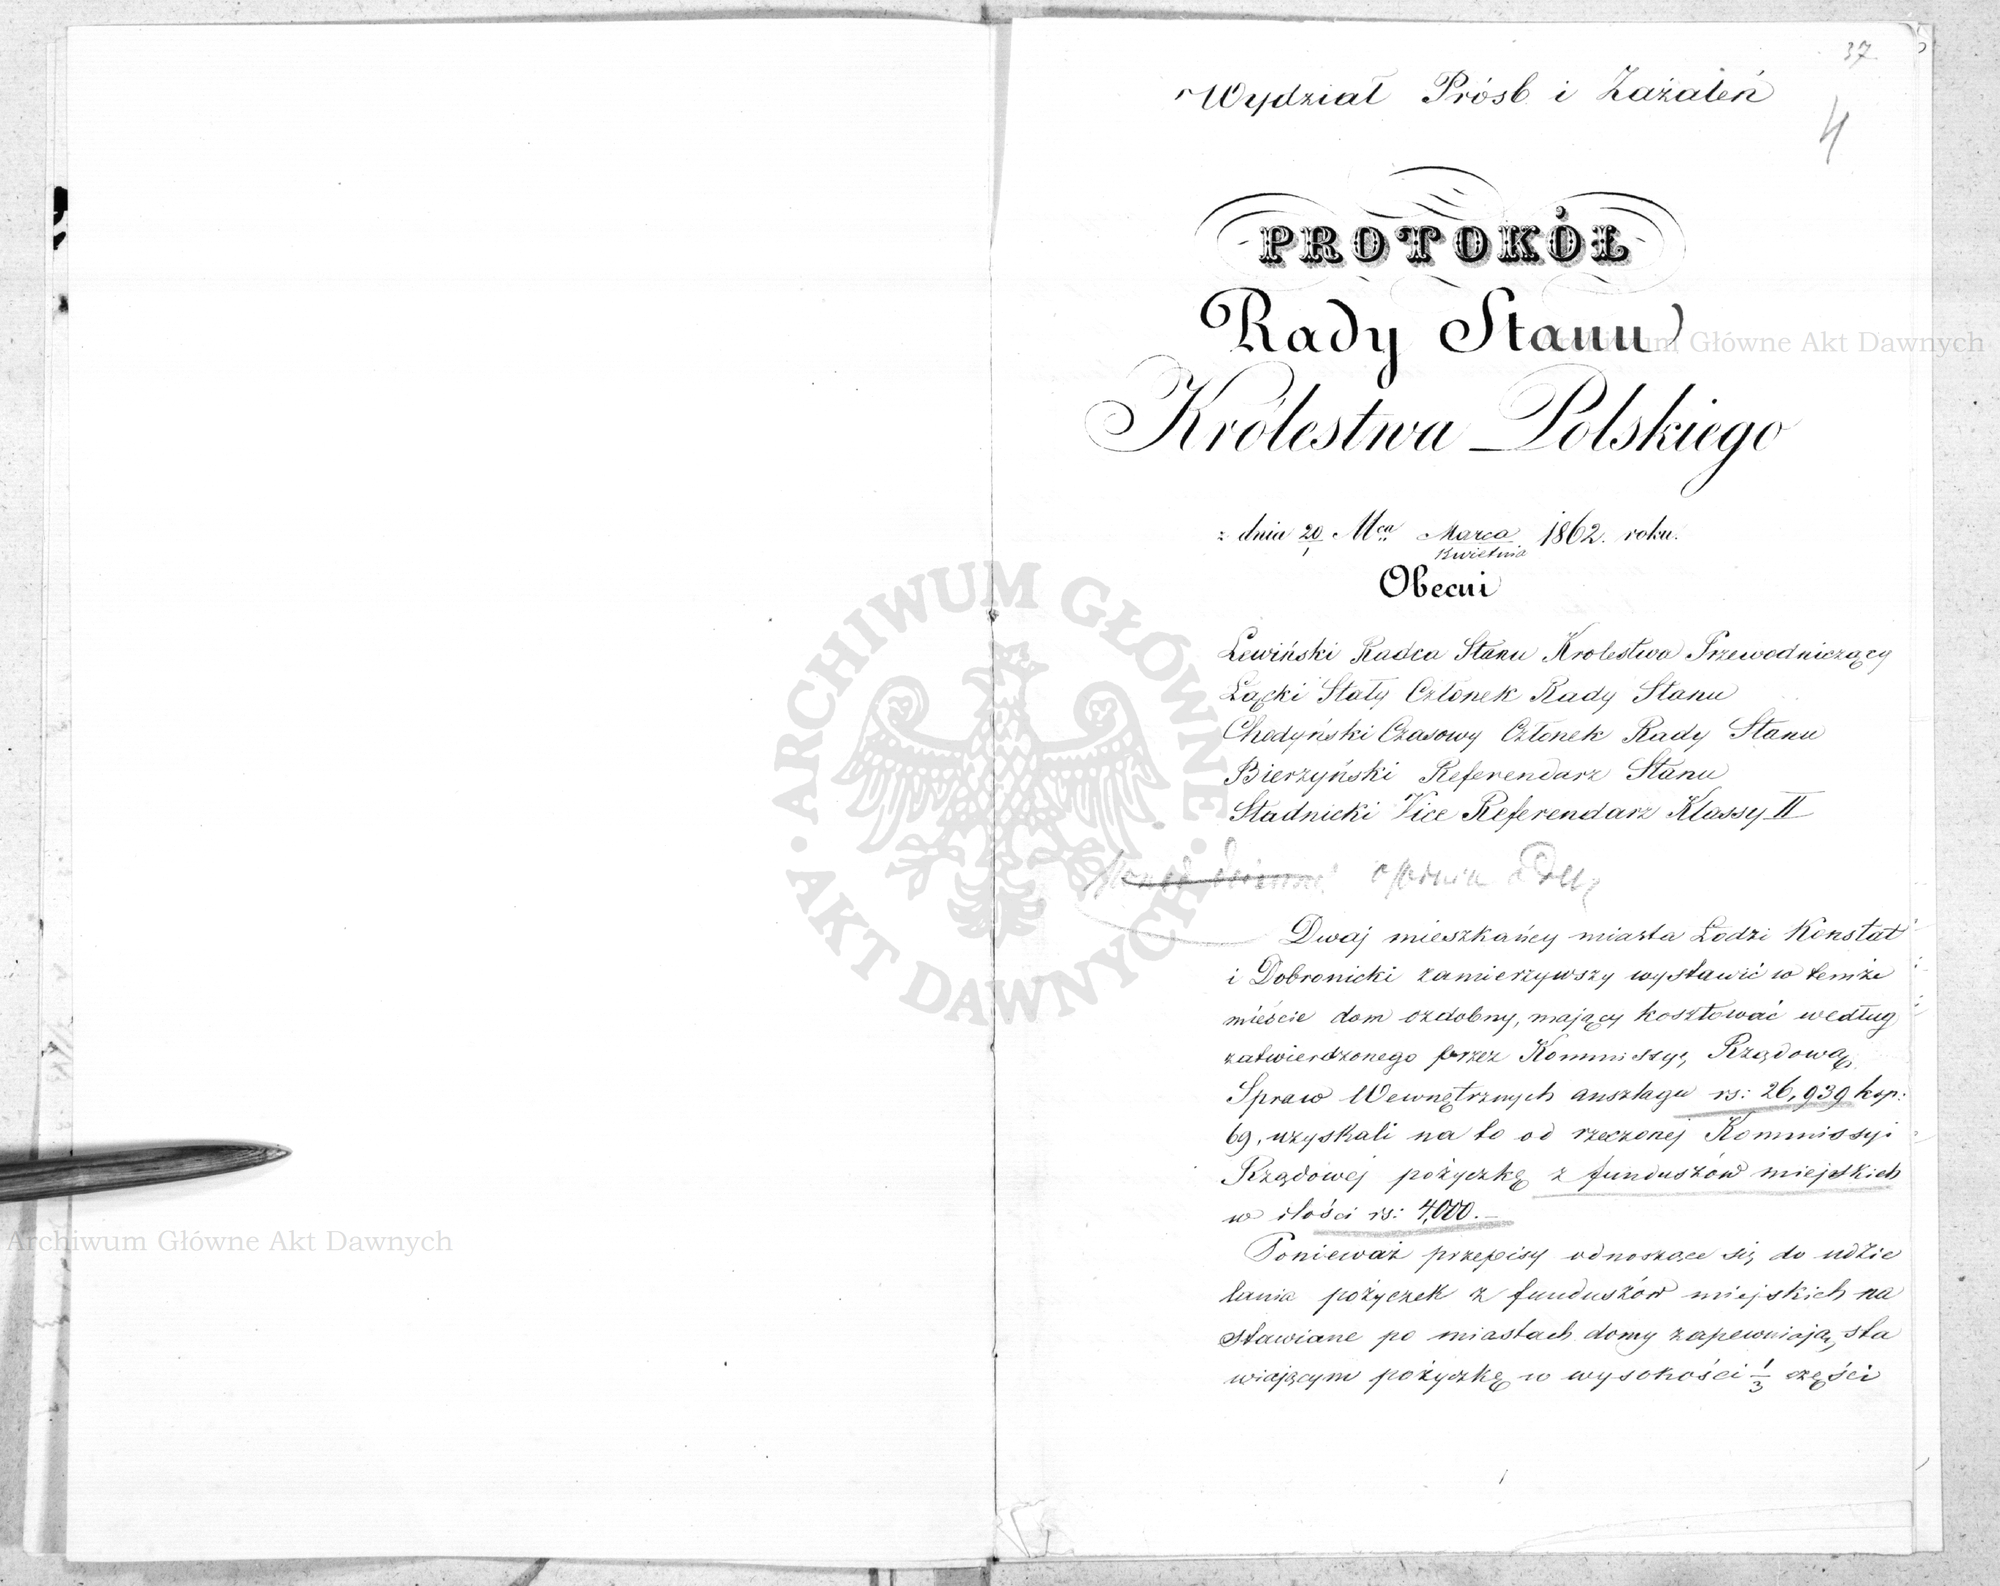 37
Wydział Próśb i Zażaleń
4
PROTOKÓŁ
Rady Stanu
Królestwa Polskiego
z dnia 20/1 Mca Marca/Kwietnia 1862. roku.
Obecni
Lewiński Radca Stanu Krolestwa Przewodniczący
Łącki Stały Członek Rady Stanu
Chodyński Czasowy Członek Rady Stanu
Bierzyński Referendarz Stanu
Stadnicki Vice Referendarz Klassy II
Dwaj mieszkańcy miasta Łodzi Konstat
i Dobronicki zamierzywszy wystawić w temże
mieście dom ozdobny, mający kosztować według
zatwierdzonego przez Kommissyą Rządową
Spraw Wewnętrznych anszlagu rs: 26,939 kop:
69, uzyskali na to od rzeczonej Kommissyi
Rządowej pożyczkę z funduszów miejskich
w ilości rs: 4,000.—
Ponieważ przepisy odnoszące się do udzie
lania pożyczek z funduszów miejskich na
stawiane po miastach domy zapewniają sta
wiającym pożyczkę w wysokości 1/3 części
ARCHIWUM GŁÓWNE AKT DAWNYCH
Archiwum Główne Akt Dawnych
Archiwum Główne Akt Dawnych